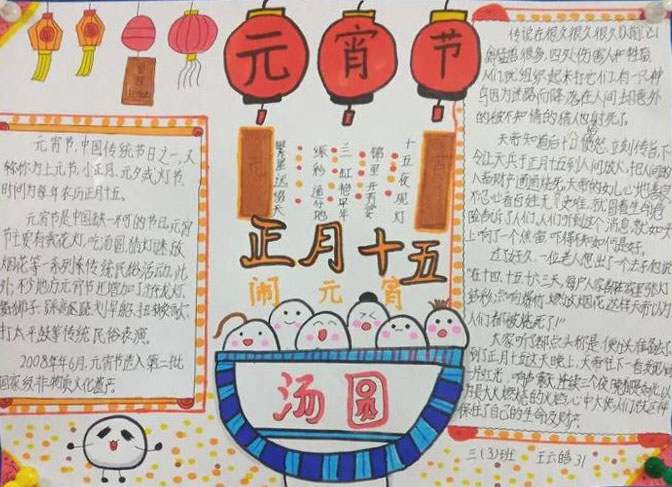 元宵节
元宵节,中国传统节日之一,又
称称为上元节,小正月,元夕或灯节,
时间为每年农历正月十五。
元宵节是中国
节主要有赏花灯,吃汤圆,猜灯谜,放
烟花等一系列传统民俗活动。此
外,不少地方元宵节还增加了游龙灯,
耍狮子、踩高跷、划旱船、扭秧歌,
打太平鼓等传统民俗表演。
2008年6月,元宵节选入第二批
国家级非物质文化遗产。
正月十五
闹元宵
汤圆
传说在很久很久以前,凶
禽猛兽很多,四处伤害人和牲畜,
人们就组织起来打它们,有一只神
鸟因为迷路而降落在人间,却意外
的被不知情的猎人射死了。
天帝知道后十分愤怒,立刻传旨,下
令让天兵于正月十五到人间放火,把人间的
人畜财产通通烧死。天帝的女儿心地善良,
不忍心看百姓无辜受难,就冒着生命危
险告诉了人们,人们听到这个消息,就如头
上响了一个焦雷,吓得不知如何是好。
过了好久,一位老人想出了个法子,他说:
"在十四、十五、十六三天,每户人家都在家里张灯
结彩,点响爆竹、燃放烟花。这样天帝以为
人们都被烧死了!"
大家听了都点头称是,便分头准备去了。
到了正月十五这天晚上,天帝往下一看,发现人间
一片红光,响声震天,连续三个夜晚都是如此,以
为是大火燃烧的火焰,心中大快。人们就这样
保住了自己的生命及财产。
三(3)班 王云皓 31